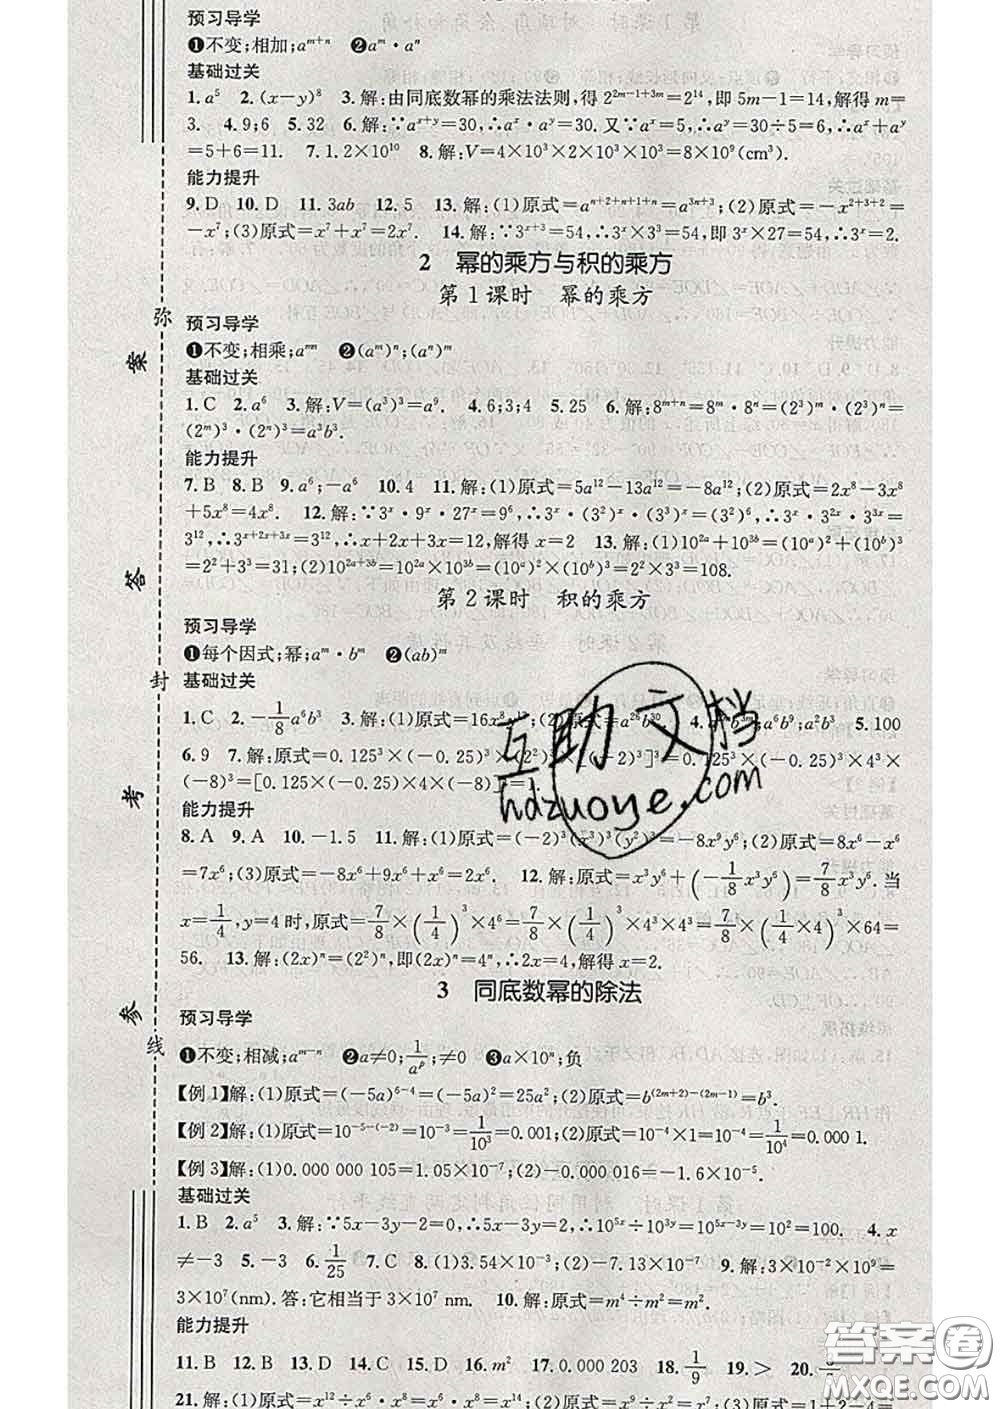 预习导学
❶不变;相加;a^{m+n}　❷a^m·a^n
基础过关
1. a^5　2. (x-y)^8　3. 解:由同底数幂的乘法法则,得 2^{2m-1+3m}=2^{14},即 5m-1=14,解得 m=
3.　4. 9;6　5. 32　6. 解:∵a^{x+y}=30,∴a^x·a^y=30. 又∵a^x=5,∴a^y=30÷5=6,∴a^x+a^y
=5+6=11.　7. 1.2×10^{10}　8. 解:V=4×10^3×2×10^3×10^3=8×10^9(cm^3).
能力提升
9. D　10. D　11. 3ab　12. 5　13. 解:(1)原式=a^{n+2+n+1+n}=a^{3n+3};(2)原式=-x^{2+3+2}=
-x^7;(3)原式=x^7+x^7=2x^7.　14. 解:∵3^{x+3}=54,∴3^x×3^3=54,即 3^x×27=54,∴3^x=2.
2　幂的乘方与积的乘方
第 1 课时　幂的乘方
预习导学
❶不变;相乘;a^{mn}　❷(a^m)^n;(a^n)^m
基础过关
1. C　2. a^6　3. 解:V=(a^3)^3=a^9.　4. 6;3;4　5. 25　6. 解:8^{m+n}=8^m·8^n=(2^3)^m·(2^3)^n=
(2^m)^3·(2^n)^3=a^3b^3.
能力提升
7. B　8. B　9. a^6;-a^6　10. 4　11. 解:(1)原式=5a^{12}-13a^{12}=-8a^{12};(2)原式=2x^8-3x^8
+5x^8=4x^8.　12. 解:∵3^x·9^x·27^x=9^6,∴3^x·(3^2)^x·(3^3)^x=(3^2)^6,∴3^x·3^{2x}·3^{3x}=
3^{12},∴3^{x+2x+3x}=3^{12},∴x+2x+3x=12,解得 x=2　13. 解:(1)10^{2a}+10^{3b}=(10^a)^2+(10^b)^3
=2^2+3^3=31;(2)10^{2a+3b}=10^{2a}×10^{3b}=(10^a)^2×(10^b)^3=2^2×3^3=108.
第 2 课时　积的乘方
预习导学
❶每个因式;幂;a^m·b^m　❷(ab)^m
基础过关
1. C　2. -\frac{1}{8}a^6b^3　3. 解:(1)原式=16x^8y^{12};(2)原式=a^{26}b^{30}.　a^6b^9;a^2b^3　5. 100
6. 9　7. 解:原式=0.125^3×(-0.25)^3×(2^2)^3×[(-2)^3]^3=0.125^3×(-0.25)^3×4^3×
(-8)^3=[0.125×(-0.25)×4×(-8)]^3=1.
能力提升
8. A　9. A　10. -1.5　11. 解:(1)原式=(-2)^3(x^3)^3(y^2)^3=-8x^9y^6;(2)原式=8x^6-x^6
=7x^6;(3)原式=-8x^6+9x^6+x^6=2x^6.　12. 解:原式=x^3y^6+(-\frac{1}{8}x^3y^6)=\frac{7}{8}x^3y^6. 当
x=\frac{1}{4},y=4 时,原式=\frac{7}{8}×(\frac{1}{4})^3×4^6=\frac{7}{8}×(\frac{1}{4})^3×4^3×4^3=\frac{7}{8}×(\frac{1}{4}×4)^3×64=
56.　13. 解:(2x)^n=(2^2)^n,即(2x)^n=4^n,∴2x=4,解得 x=2.
3　同底数幂的除法
预习导学
❶不变;相减;a^{m-n}　❷a≠0;\frac{1}{a^p};≠0　❸a×10^n;负
【例 1】解:(1)原式=(-5a)^{6-4}=(-5a)^2=25a^2;(2)原式=b^{(2m+2)-(2m-1)}=b^3.
【例 2】解:(1)原式=10^{-5-(-2)}=10^{-3}=\frac{1}{10^3}=0.001;(2)原式=10^{-4}×1=10^{-4}=\frac{1}{10^4}=0.000 1.
【例 3】解:(1)0.000 000 105=1.05×10^{-7};(2)-0.000 016=-1.6×10^{-5}.
基础过关
1. B　2. a^5　3. 解:∵5x-3y-2=0,∴5x-3y=2,∴10^{5x}÷10^{3y}=10^{5x-3y}=10^2=100.　4. x
≠-3　5. -3　6. \frac{1}{25}　7. C　8. (1)3.5×10^{-3};(2)-2×10^{-7}　9. 解:3×10^{-2}÷10^{-9}=
3×10^7(nm). 答:它相当于 3×10^7 nm.　10. 解:原式=m^4÷m^2=m^2.
能力提升
11. B　12. B　13. D　14. C　15. D　16. m^2　17. 0.000 203　18. \frac{1}{9}　19. >　20.
21. 解:(1)原式=x^{12}÷x^6÷x^4=x^2
弥
封
线
参
考
答
案
互助文档
hdzuoye.com
答案圈
MXQE.COM